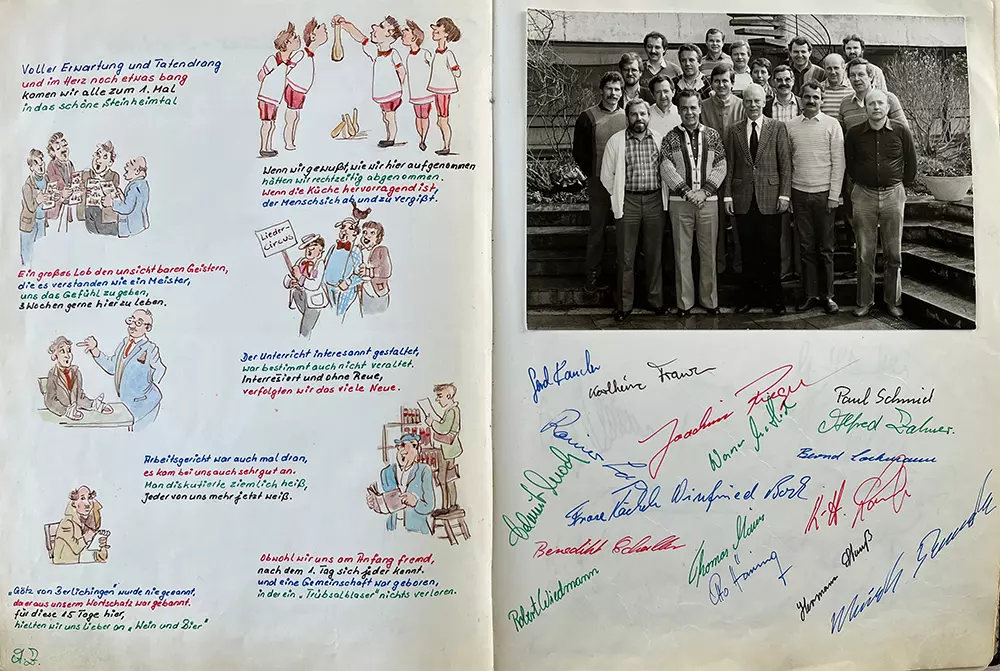 Voller Erwartung und Tatendrang
und im Herz noch etwas bang
kamen wir alle zum 1. Mal
in das schöne Steinheimtal
Wenn wir gewußt, wie wir hier aufgenommen
hätten wir rechtzeitig abgenommen.
Wenn die Küche hervorragend ist,
der Mensch sich ab und zu vergißt.
Ein großes Lob den unsichtbaren Geistern,
die es verstanden wie ein Meister,
uns das Gefühl zu geben,
3 Wochen gerne hier zu leben.
Lieder-
circus
Der Unterricht interesannt gestaltet,
war bestimmt auch nicht veraltet.
Interresiert und ohne Reue,
verfolgten wir das viele Neue.
Arbeitsgericht war auch mal dran,
es kam bei uns auch sehr gut an.
Man diskutierte ziemlich heiß,
Jeder von uns mehr jetzt weiß.
Obwohl wir uns am Anfang fremd,
nach dem 1. Tag sich jeder kennt.
und eine Gemeinschaft war geboren,
in der ein „Trübsalbläser" nichts verloren.
„Götz von Berlichingen" wurde nie genannt,
da er aus unserem Wortschatz war gebannt.
für diese 15 Tage hier,
hielten wir uns lieber an „Wein und Bier"
Karlheinz Franz
Joachim
Paul Schmid
Alfred Dahmer.
Rainer
Werner
Bernd
Helmut
Winfried Bock
K-H.
Benedikt
Thomas Maier
Robert Wiedmann
Hermann